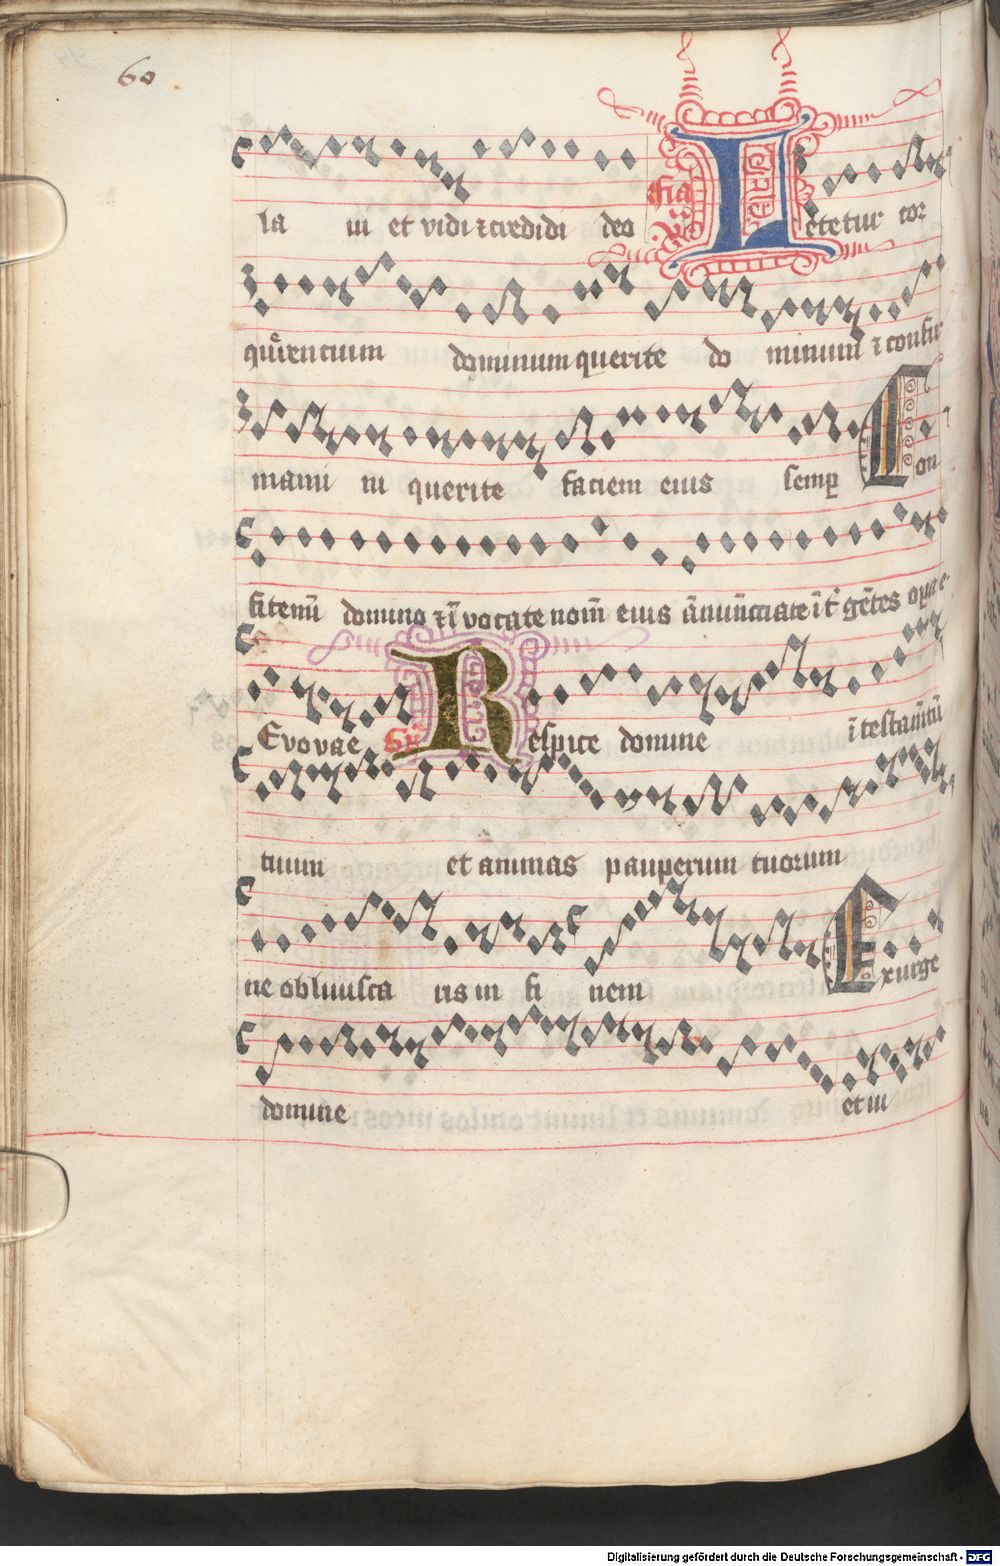 60
la ui et vidi ⁊ credidi deo fia vi Letetur cor
querencium dominum querite do minum ⁊ confir
mami ni querite faciem eius semp Con
fitemī domino ⁊ ī vocate nom̄ eius ānūnciate īt' gētes opa e
Evovae Gr Respice domine ī testamtū
tuum et animas pauperum tuorum
ne obliuisca ris in fi nem Exurge
domine et iu
Digitalisierung gefördert durch die Deutsche Forschungsgemeinschaft - DFG